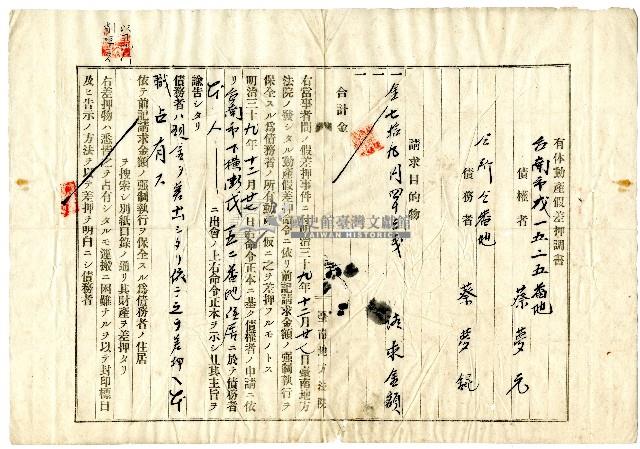 有体動産假差押調書
台南市戊一五二五番地
債權者 蔡夢元
仝所仝番地
債務者 蔡夢
請求目的物
一金七拾九円 請求金額
一
合計金
臺南地方法院
右當事者間ノ假差押事件ニ付明治三十九年十二月廿八日臺南地方
法院ノ發シタル動產假差押命令ニ依リ前記請求金額ノ强制執行ヲ
保全スル爲債務者ノ所有動產ヲ仮ニ之ヲ差押フルモノトス
明治三十九年十二月廿八日命令正本ニ基キ債權者ノ申請ニ依
リ台南市下橫街戊一五二五番地住居ニ於テ債務者
本人 ニ出會ノ上右命令正本ヲ示シ且其主旨ヲ
諭告シタリ
債務者ハ現金ヲ差出シタリ依テ之ヲ差押ヘ本
職占有ス
依テ前記請求金額ノ强制執行ヲ保全スル爲債務者ノ住居
ヲ搜索シ別紙目錄ノ通リ其財產ヲ差押タリ
右差押物ハ悉皆之ヲ占有シタルモ運搬ニ困難ナルヲ以テ封印標目
及ヒ告示ノ方法ヲ以テ差押ヲ明白ニシ債務者
國史館臺灣文獻館
TAIWAN HISTORICA